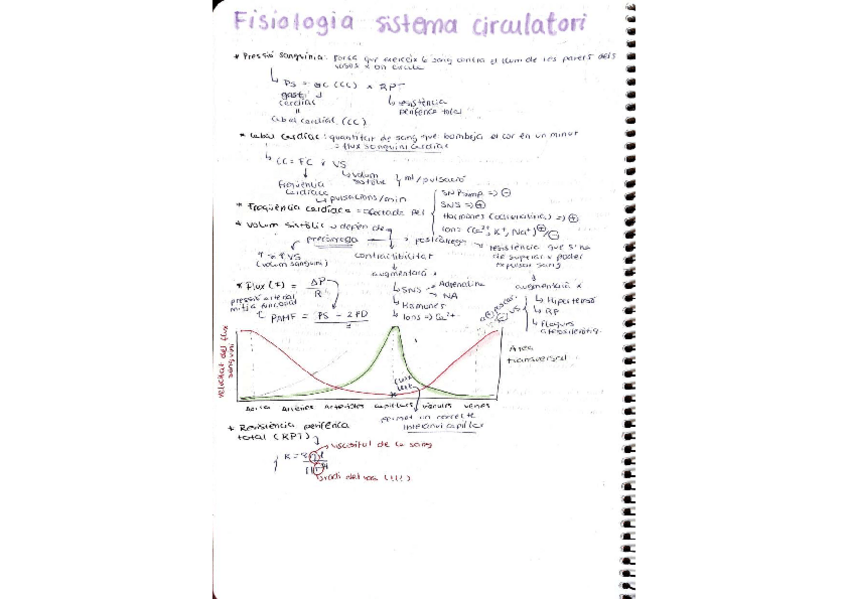 Fisiologia sistema circulatori
* Pressió sanguínia: força que exerceix la sang contra el llum de les parets dels
vasos x on circula
PS = GC (CC) x RPT
gasto
cardíac
=
cabal cardíac (CC)
resistència
perifèrica total
* Cabal cardíac: quantitat de sang que bombeja el cor en un minut
= flux sanguini cardíac
CC = FC x VS
Freqüència
cardíaca
pulsacions/min
volum
sistòlic
ml/pulsació
* Freqüència cardíaca = afectada pel
SNPsimp => -
SNS => +
Hormones => +
Ions (Ca2+, K+, Na+) +/-
* Volum sistòlic -> depèn de
precàrrega
↑ x ↑ VS
(volum sanguini)
contractibilitat
augmentarà x
SNS
Adrenalina
NA
Hormones
Ions => Ca2+
postcàrrega
resistència que s'ha
de superar x poder
expulsar sang
augmentarà x
Hipertensió
RP
Plaques
* Flux (F) = ΔP
R
pressió arterial
mitja funcional
PAMF = PS - 2PD
3
velocitat del flux
sanguini
Àrea
transversal
Aorta Artèries Artèrioles Capil·lars Vènules Venes
permet un correcte
intercanvi capil·lar
* Resistència perifèrica
total (RPT)
viscositat de la sang
radi del vas (!!!)